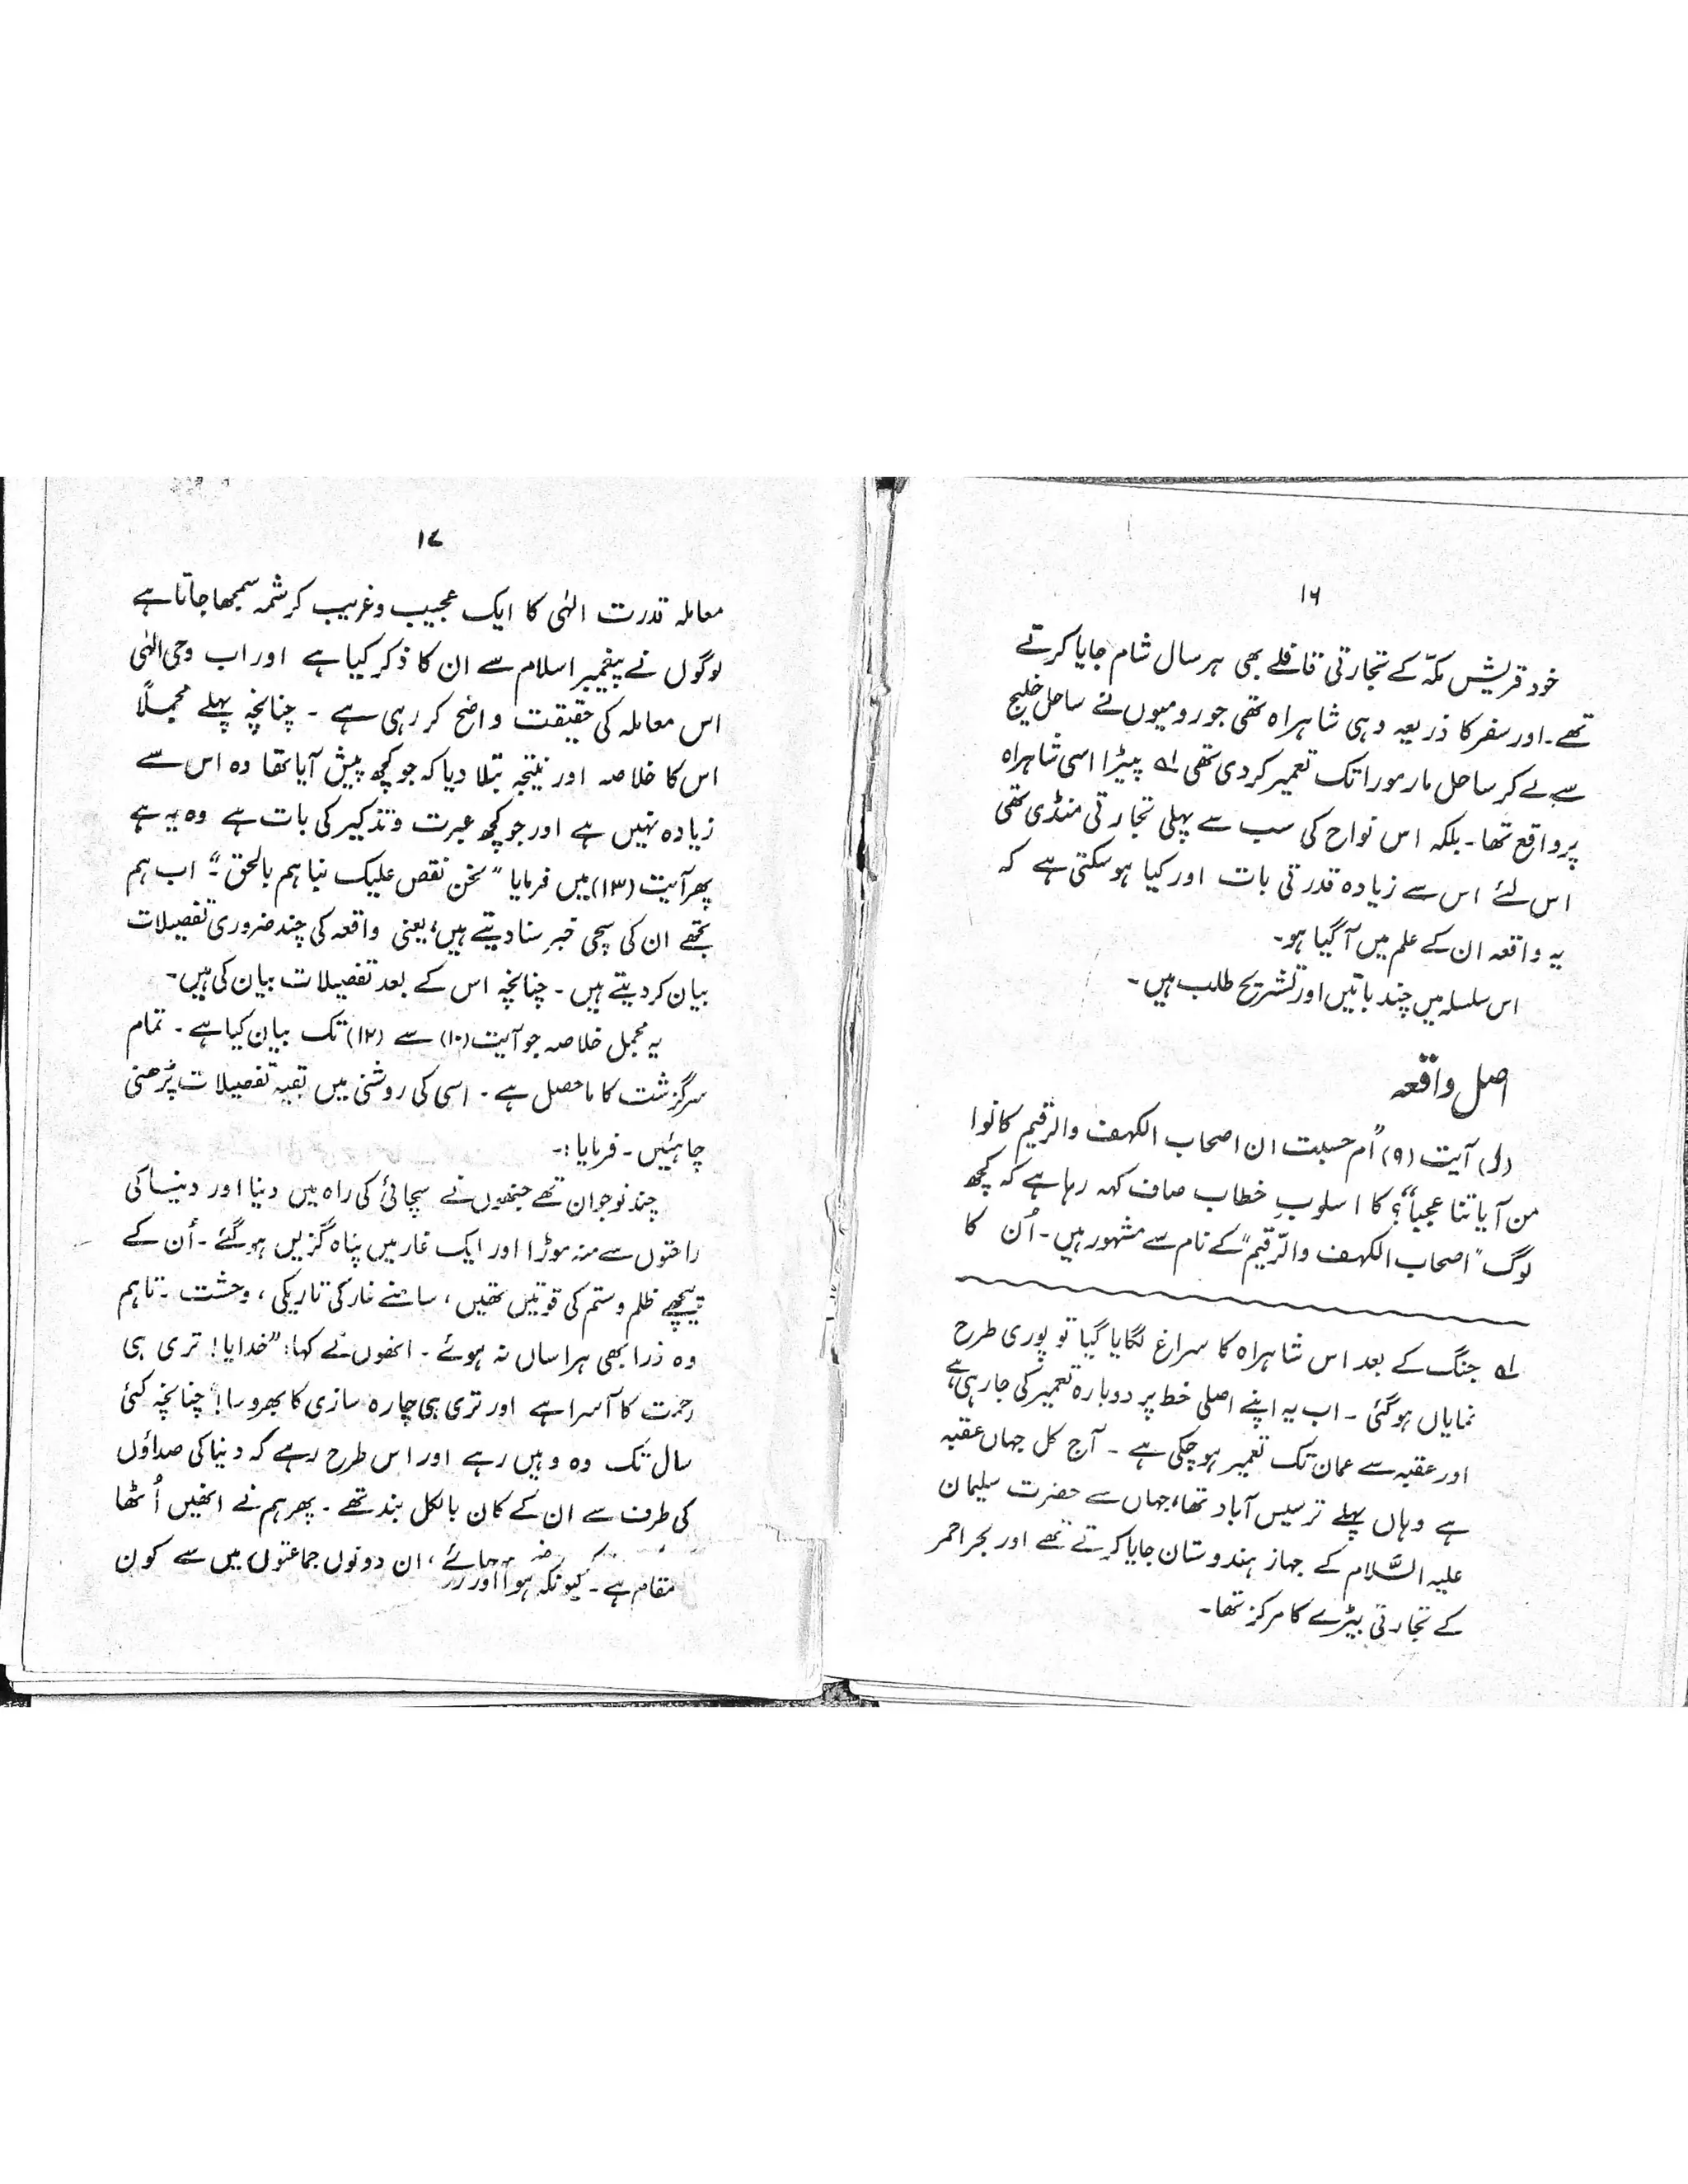 ۱۶
خود قریش مکّہ کے تجارتی قافلے بھی ہر سال شام جایا کرتے
تھے۔ اور سفر کا ذریعہ وہی شاہراہ تھی جو رومیوں نے ساحل خلیج
سے لے کر ساحل مارمورا تک تعمیر کر دی تھی ۱ے پیٹرا اسی شاہراہ
پر واقع تھا۔ بلکہ اس نواح کی سب سے پہلی تجارتی منڈی تھی
اس لئے اس سے زیادہ قدرتی بات اور کیا ہو سکتی ہے کہ
یہ واقعہ ان کے علم میں آ گیا ہو۔
اس سلسلہ میں چند باتیں اور تشریح طلب ہیں۔
اصل واقعہ
(ل) آیت (۹) "اُم حسبت ان اصحاب الکہف والرقیم کانوا
من آیاتنا عجباً"؟ کا اسلوبِ خطاب صاف کہہ رہا ہے کہ کچھ
لوگ "اصحاب الکہف والرّقیم" کے نام سے مشہور ہیں۔ اُن کا
۱ے جنگ کے بعد اس شاہراہ کا سراغ لگایا گیا تو پوری طرح
نمایاں ہو گئی۔ اب یہ اپنے اصلی خط پر دوبارہ تعمیر کی جا رہی ہے
اور عقبہ سے عمان تک تعمیر ہو چکی ہے۔ آج کل جہاں عقبہ
ہے وہاں پہلے ترسیس آباد تھا، جہاں سے حضرت سلیمان
علیہ السَّلام کے جہاز ہندوستان جایا کرتے تھے اور بحر احمر
کے تجارتی بیڑے کا مرکز تھا۔
۱۷
معاملہ قدرت الٰہی کا ایک عجیب و غریب کرشمہ سمجھا جاتا ہے
لوگوں نے پیغمبر اسلام سے ان کا ذکر کیا ہے اور اب وحی الٰہی
اس معاملہ کی حقیقت واضح کر رہی ہے۔ چنانچہ پہلے مجملاً
اس کا خلاصہ اور نتیجہ بتلا دیا کہ جو کچھ پیش آیا تھا وہ اس سے
زیادہ نہیں ہے اور جو کچھ عبرت و تذکیر کی بات ہے وہ یہ ہے
پھر آیت (۱۳) میں فرمایا "نحن نقص علیک نبا ہم بالحق"۔ اب ہم
تجھے ان کی سچی خبر سنا دیتے ہیں، یعنی واقعہ کی چند ضروری تفصیلات
بیان کر دیتے ہیں۔ چنانچہ اس کے بعد تفصیلات بیان کی ہیں۔
یہ مجمل خلاصہ جو آیت (۱۰) سے (۱۲) تک بیان کیا ہے۔ تمام
سرگزشت کا ماحصل ہے۔ اسی کی روشنی میں بقیہ تفصیلات پڑھنی
چاہئیں۔ فرمایا:۔
چند نوجوان تھے جنھوں نے سچائی کی راہ میں دنیا اور دنیا کی
راحتوں سے منہ موڑا اور ایک غار میں پناہ گزیں ہو گئے۔ اُن کے
پیچھے ظلم و ستم کی قوتیں تھیں، سامنے غار کی تاریکی، وحشت۔ تاہم
وہ ذرا بھی ہراساں نہ ہوئے۔ انھوں نے کہا: "خدایا! تری ہی
رحمت کا آسرا ہے اور تری ہی چارہ سازی کا بھروسا!" چنانچہ کئی
سال تک وہ وہیں رہے اور اس طرح رہے کہ دنیا کی صداؤں
کی طرف سے ان کے کان بالکل بند تھے۔ پھر ہم نے انھیں اُٹھا
جائے، ان دونوں جماعتوں میں سے کون
مقام ہے۔ کیونکہ ہوا اور